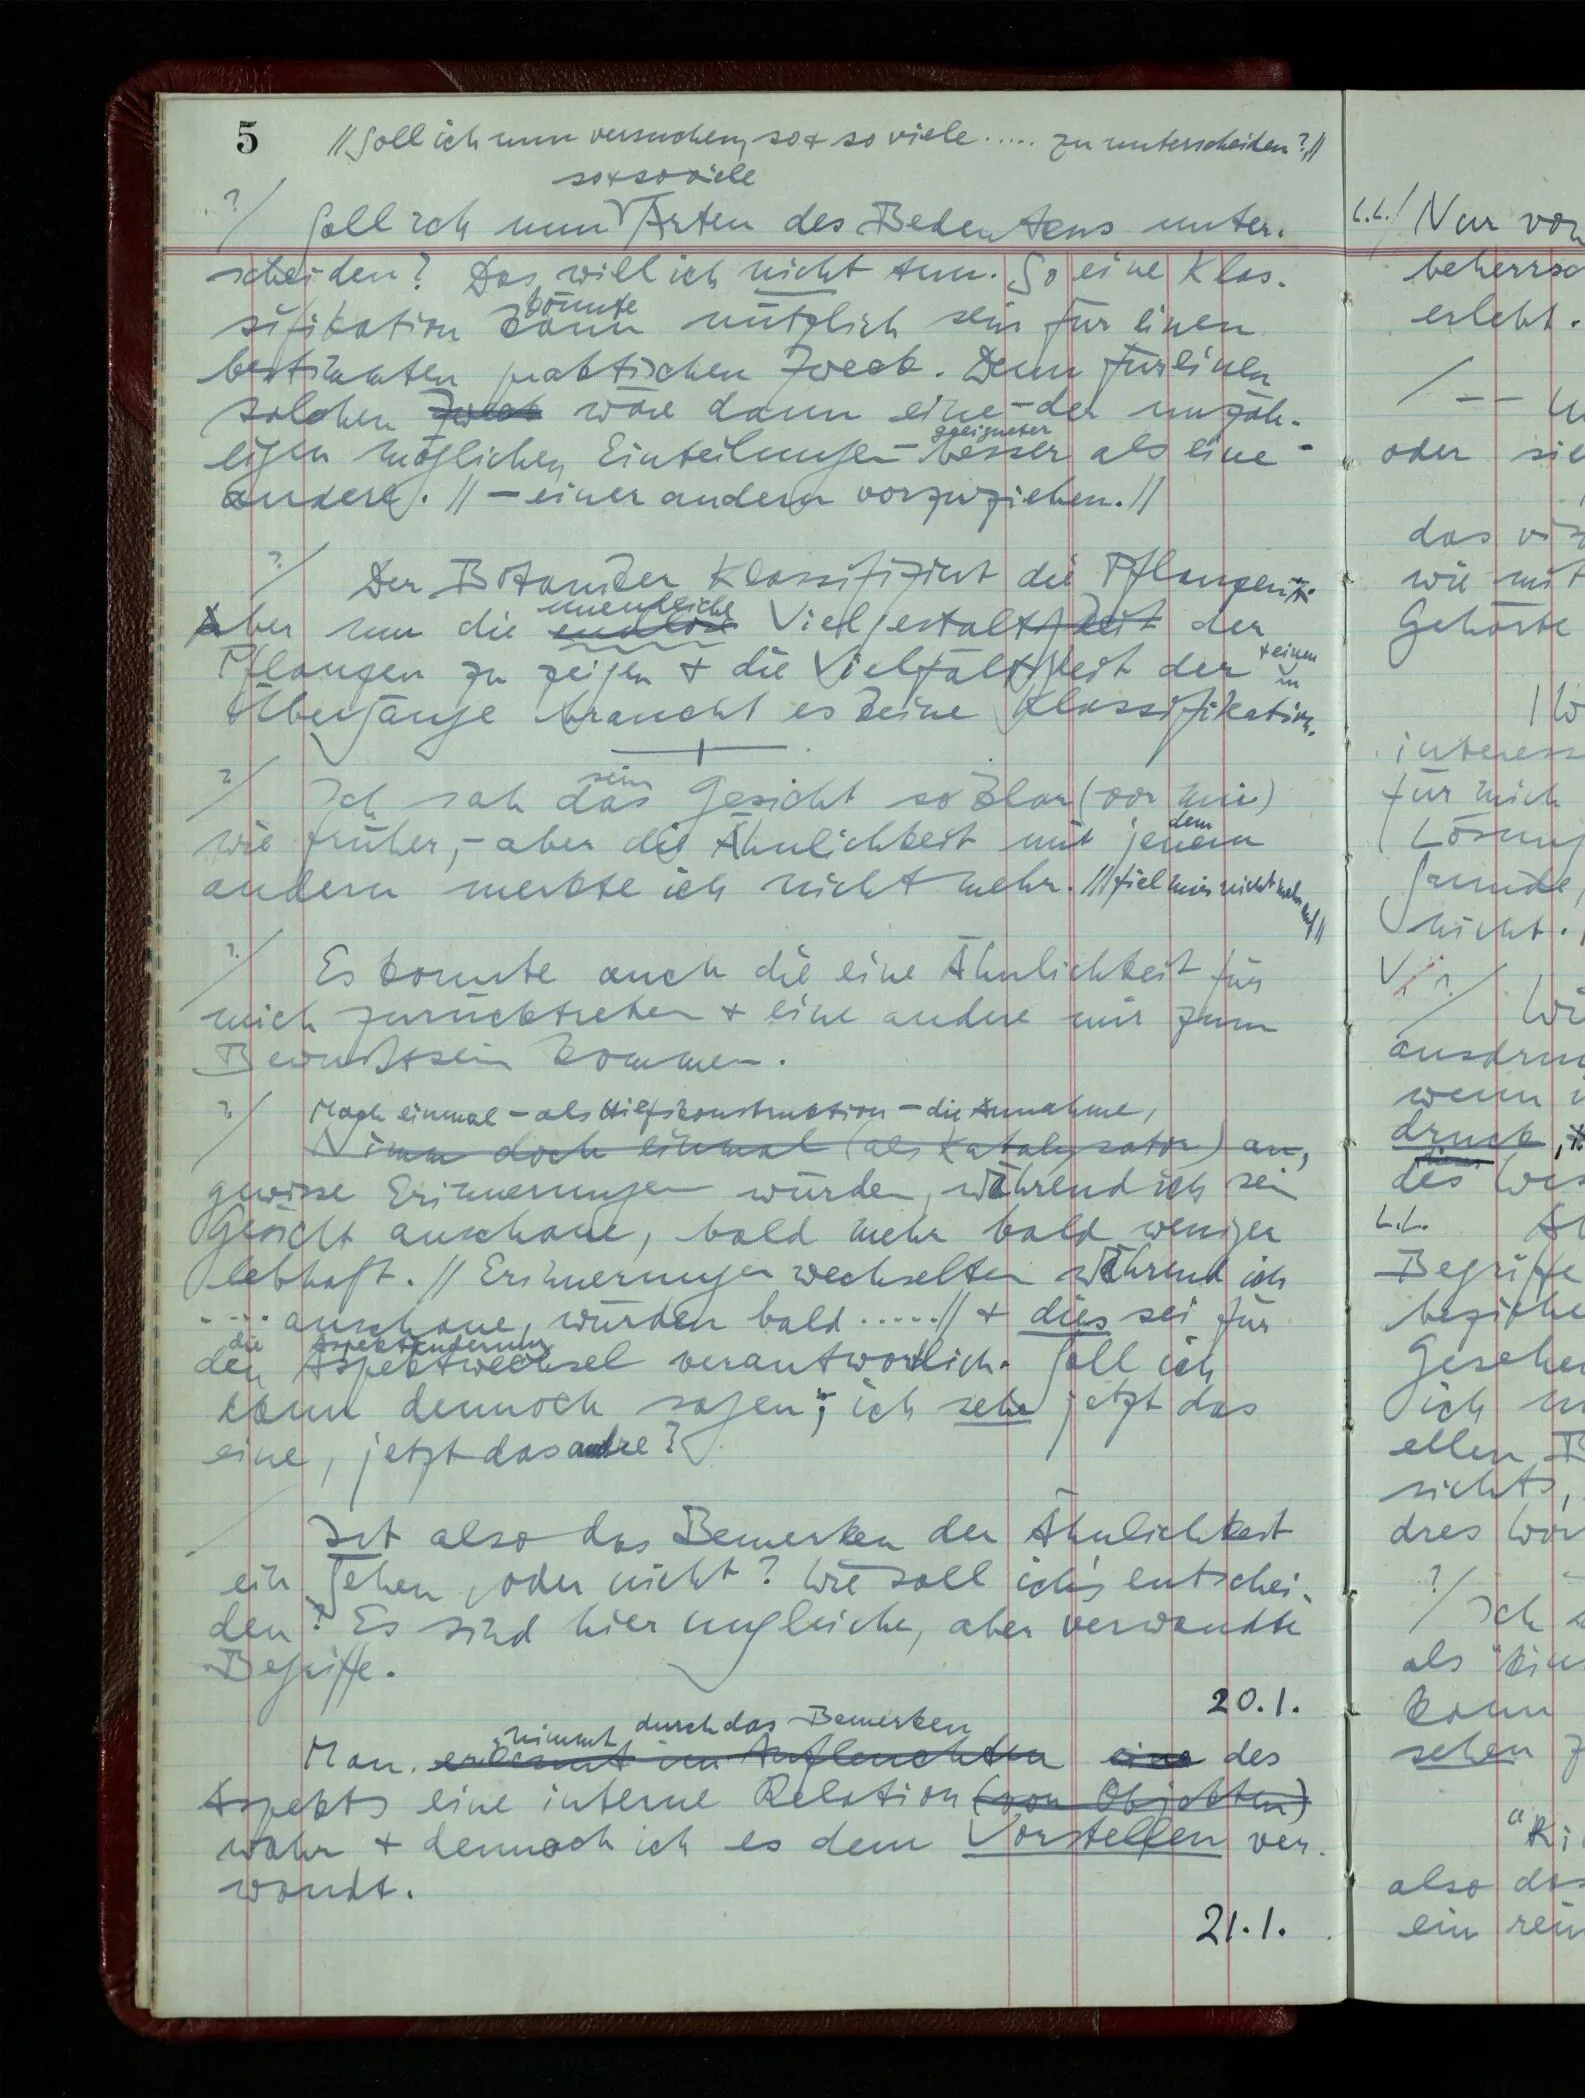 5
// Soll ich nun versuchen, so + so viele ..... zu unterscheiden? //
so + so viele
?/ Soll ich nun Arten des Bedeutens unter-
scheiden? Das will ich nicht tun. So eine Klas-
könnte
sifikation kann nützlich sein für einen
bestimmten praktischen Zweck. Denn für einen
solchen Zweck wäre dann eine – der unzäh-
geeigneter
ligen möglichen Einteilungen – besser als eine
andere. // – einer andern vorzuziehen. //
?/ Der Botaniker klassifiziert die Pflanzen.
unendliche
Aber um die endlose Vielgestaltigkeit der
Pflanzen zu zeigen + die Vielfältigkeit der
+ einen
in
Übergänge braucht es keine Klassifikation.
sein
?/ Ich sah das Gesicht so klar (vor mir)
wie früher, – aber die Ähnlichkeit mit jenem
dem
andern merkte ich nicht mehr. // fiel mir nicht mehr
auf //
?/ Es konnte auch die eine Ähnlichkeit für
mich zurücktreten + eine andere mir zum
Bewußtsein kommen.
?/ Mach einmal – als Hilfskonstruktion – die Annahme,
Nimm doch einmal (als Katalysator) an,
gewisse Erinnerungen würden, während ich sein
Gesicht anschaue, bald mehr bald weniger
lebhaft. // Erinnerungen wechselten während ich
.... anschaue, würden bald ..... // + dies sei für
die Aspektänderung
den Aspektwechsel verantwortlich. Soll ich
dann dennoch sagen; ich sehe jetzt das
eine, jetzt das andre?
/ Ist also das Bemerken der Ähnlichkeit
ein Sehen, oder nicht? Wie soll ich's entschei-
den? Es sind hier ungleiche, aber verwandte
Begriffe.
20.1.
nimmt durch das Bemerken
Man erkennt im Aufleuchten eine des
Aspekts eine interne Relation (von Objekten)
wahr + dennoch ich es dem Vorstellen ver-
wandt.
21.1.
L.L./ Nur von
beherrsc
erlebt.
/ ––
oder sie
das
wie mit
Gehörte
interess
für mich
Lösung
nicht.
ausdru
wenn
druck,
des
L.L.
Begriffe
beziehe
Gesehe
ich
ellen B
sichts,
dres Wor
?/ Ich
als
kann
sehen
also das
ein rein